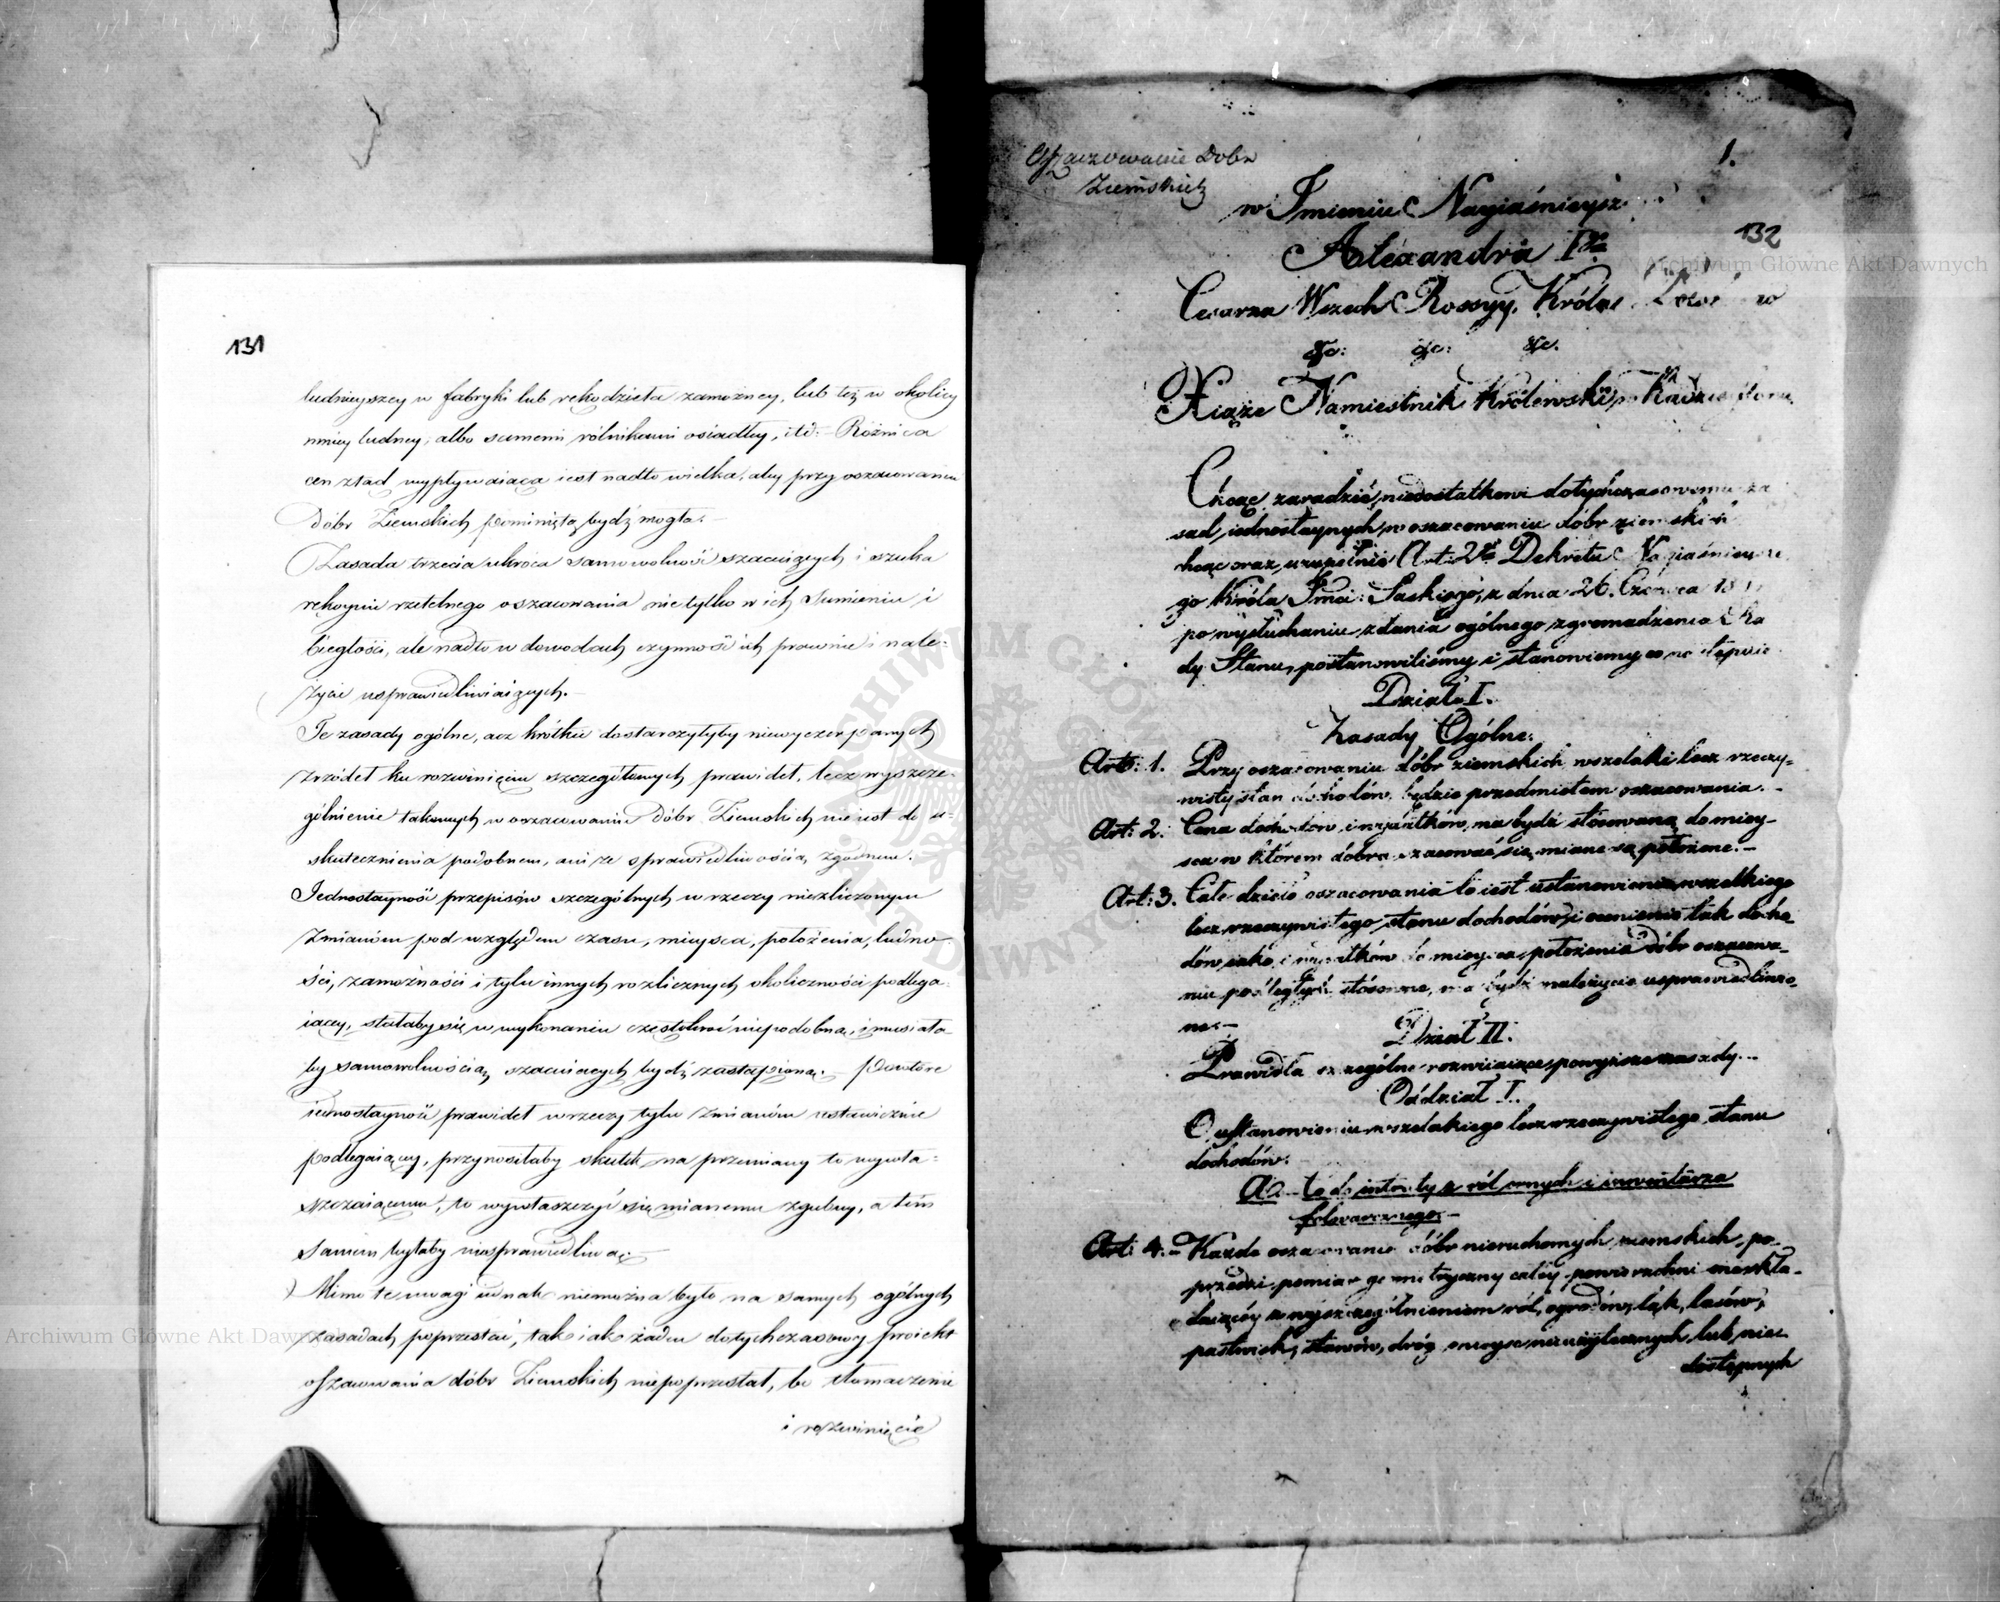 131
ludnieyszey w fabryki lub rękodzieła zamożney, lub też w okolicy
mniey ludney, albo samemi rólnikami osiadłey, itd: – Różnica
cen ztąd wypływaiąca iest nadto wielka, aby przy oszacowaniu
Dóbr Ziemskich pominiętą bydź mogła. –
Zasada trzecia ukróca samowolność szacuiących i szuka
rękoymi rzetelnego oszacowania nietylko w ich Sumieniu i
biegłości, ale nadto w dowodach czynność ich prawnie i nale-
życie usprawiedliwiaiących. –
Te zasady ogólne, acz krótkie dostarczyłyby niewyczerpanych
źrzódeł ku rozwinięciu szczegółowych prawideł, lecz wyszcze-
gólnienie takowych w oszacowaniu Dóbr Ziemskich nie iest do u-
skutecznienia podobnem, ani ze sprawiedliwością zgodnem.
Jednostayność przepisów szczególnych w rzeczy niezliczonym
zmianom pod względem czasu, mieysca, położenia, ludno-
ści, zamożności i tylu innych rozlicznych okoliczności podlega-
iącey, stałaby się w wykonaniu częstokroć niepodobną, i musiała-
by samowolnością szacuiących bydź zastąpioną. – Powtóre
iednostayność prawideł w rzeczy tylu zmianom ustawicznie
podlegaiącey, przynosiłaby skutek na przemiany to wywła-
szczaiącemu, to wywłaszczyć się mianemu zgubny, a tém
samem byłaby niesprawiedliwą. –
Mimo te uwagi iednak niemożna było na samych ogólnych
zasadach poprzestać, tak iako żaden dotychczasowy proiekt
oszacowania dóbr Ziemskich niepoprzestał, bo tłomaczenie
i rozwinięcie
Oszacowanie Dobr
Ziemskich
1.
132
w Imieniu Nayiaśnieysz
Alexandra Igo
Cesarza Wszech Rossyy, Króla
&c: &c: &c.
Xiąże Namiestnik Królewski w Radzie Stanu
Chcąc zaradzić niedostatkowi dotychczasowemu za
sad iednostaynych w oszacowaniu dóbr ziemskich
chcąc oraz uzupełnić Art. 2gi Dekretu Nayiaśnieysze
go Króla Jmci Saskiego, z dnia 26. Czerwca 18
po wysłuchaniu zdania ogólnego zgromadzenia Ra
dy Stanu, postanowiliśmy i stanowiemy co następuie
Dział I.
Zasady Ogólne.
Art: 1. Przy oszacowaniu dóbr ziemskich wszelaki lecz rzeczy-
wisty stan dochodów będzie przedmiotem oszacowania. –
Art: 2. Cena dochodów i wydatków, ma bydź stósowaną do miey-
sca w którem dobra szacować się miane są położone. –
Art: 3. Całe dzieło oszacowania to iest ustanowienie wszelkiego
lecz rzeczywistego stanu dochodów, i ocenienie tak docho-
dów iako i wydatków do mieysca położenia dóbr oszacowa-
niu podległych stósowne, ma bydź należycie usprawiedliwio-
ne. –
Dział II.
Prawidła szczególne rozwiiaiące powyższe zasady. –
Oddział I.
O ustanowieniu wszelakiego lecz rzeczywistego stanu
dochodów.
a) co do intraty z ról ornych i inwentarza
folwarcznego. –
Art: 4. – Każde oszacowanie dóbr nieruchomych ziemskich, po-
przedzi pomiar geometryczny całey powierzchni one skła-
daiącey z wyszczególnieniem ról, ogrodów, łąk, lasów,
pastwisk, stawów, dróg, mieysc nieużytecznych, lub nie
dostępnych
Archiwum Główne Akt Dawnych